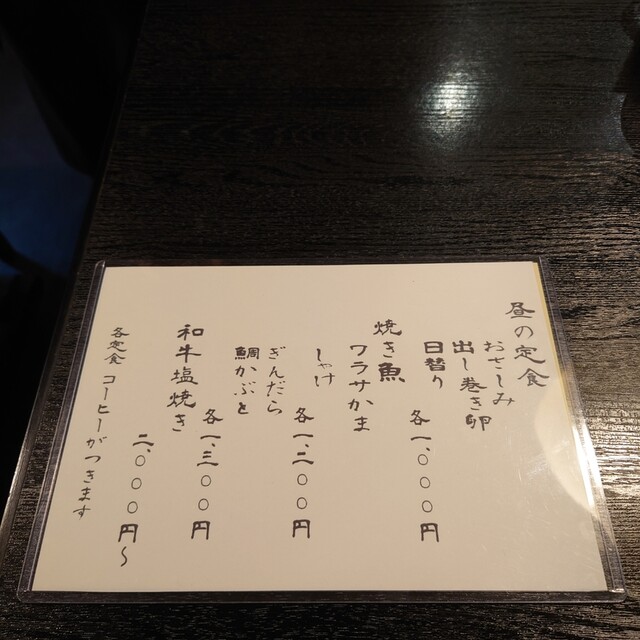 昼の定食
おさしみ
出し巻き卵
日替り
各一、〇〇〇円
焼き魚
ワラサかま
しゃけ
各一、二〇〇円
ぎんだら
鯛かぶと
各一、三〇〇円
和牛塩焼き
二、〇〇〇円〜
各定食 コーヒーがつきます